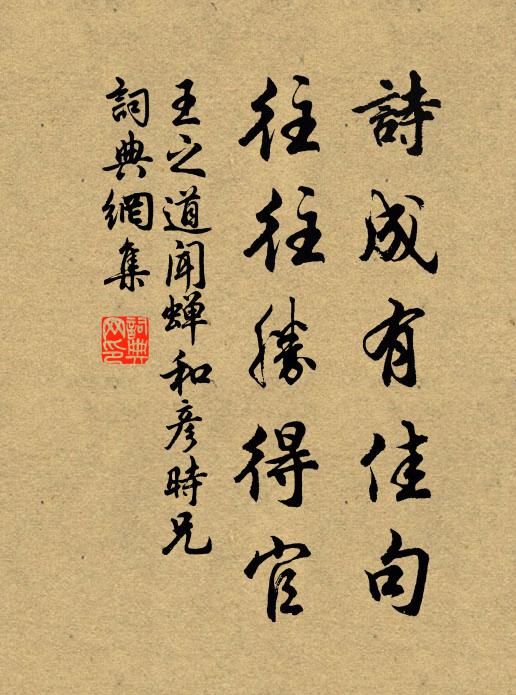 詩成有佳句
往往勝得官
王之道闻蝉和彦時兄
詞典網集
詞典网印